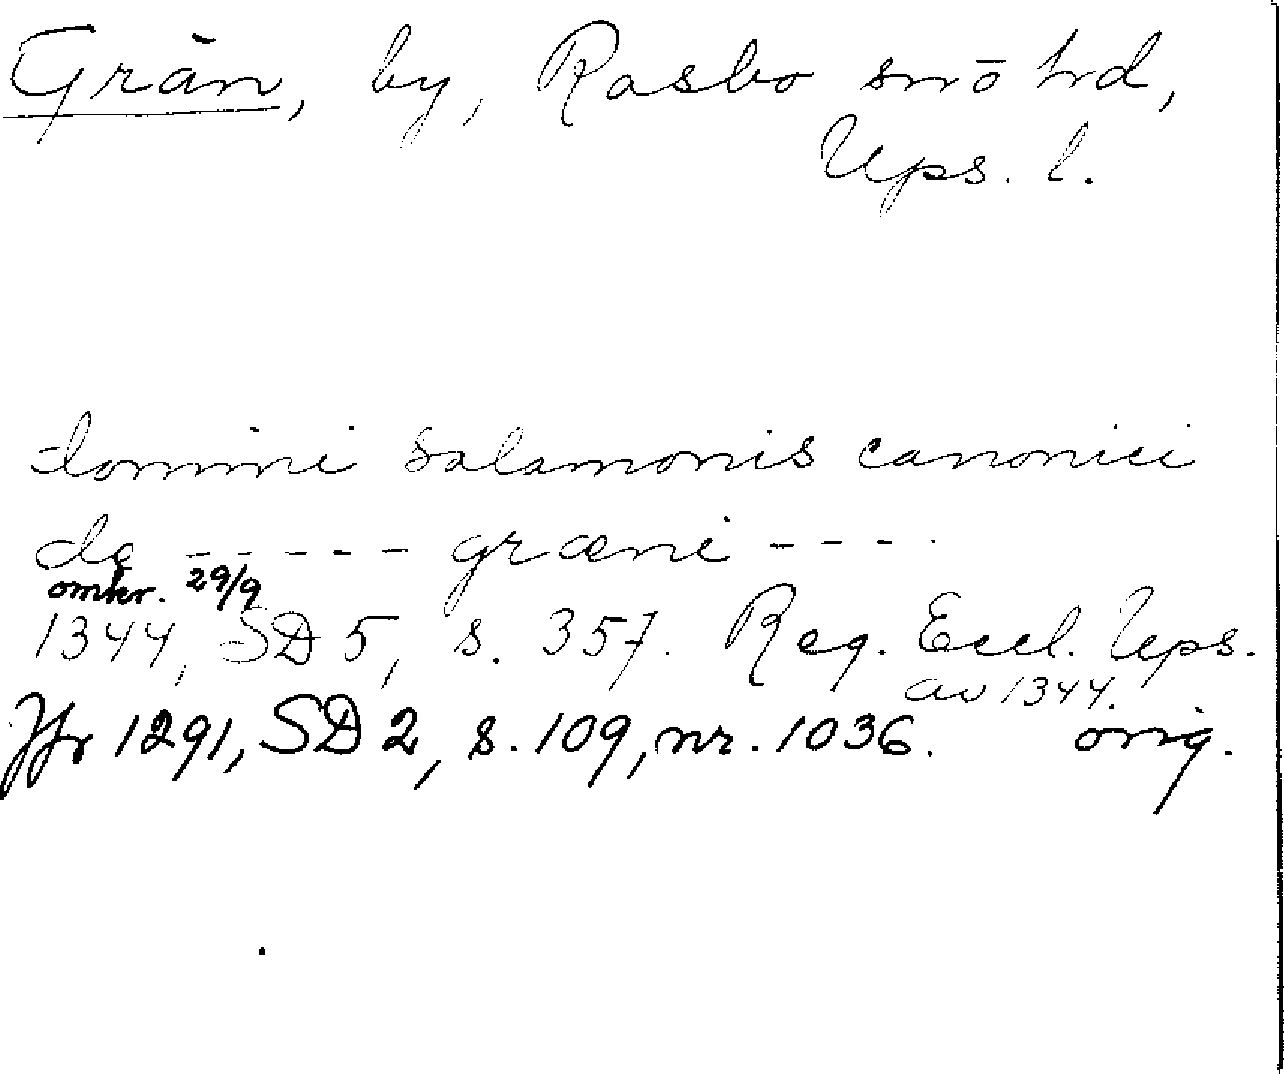 Grän, by, Rasbo sn o hd,
Ups. l.
domini salamonis canonici
de ----- græni ----
omkr. 29/9
1344, SD 5, s. 357. Reg. Eccl. Ups.
av 1344.
Jfr 1291, SD 2, s. 109, nr. 1036. orig.